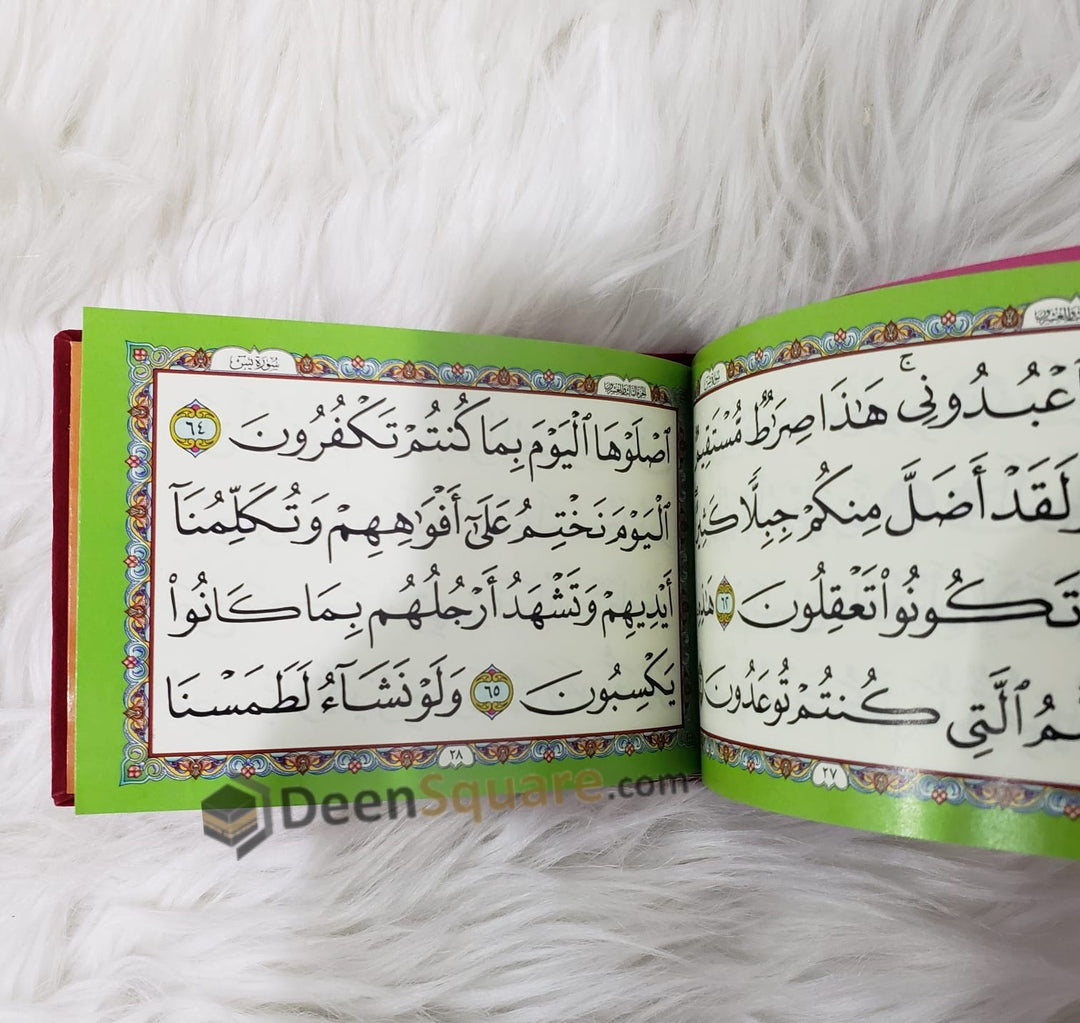 سُورَةُ يسٓ
ٱعْبُدُونِي ۚ هَٰذَا صِرَٰطٌ مُّسْتَقِيمٌ
لَقَدْ أَضَلَّ مِنكُمْ جِبِلًّا كَثِيرًا
تَكُونُوا۟ تَعْقِلُونَ ٦٢ هَٰذِهِ
ٱلَّتِي كُنتُمْ تُوعَدُونَ
٢٧
الجزء الثالث والعشرون
سُورَةُ يسٓ
ٱصْلَوْهَا ٱلْيَوْمَ بِمَا كُنتُمْ تَكْفُرُونَ ٦٤
ٱلْيَوْمَ نَخْتِمُ عَلَىٰٓ أَفْوَٰهِهِمْ وَتُكَلِّمُنَآ
أَيْدِيهِمْ وَتَشْهَدُ أَرْجُلُهُم بِمَا كَانُوا۟
يَكْسِبُونَ ٦٥ وَلَوْ نَشَآءُ لَطَمَسْنَا
٢٨
DeenSquare.com